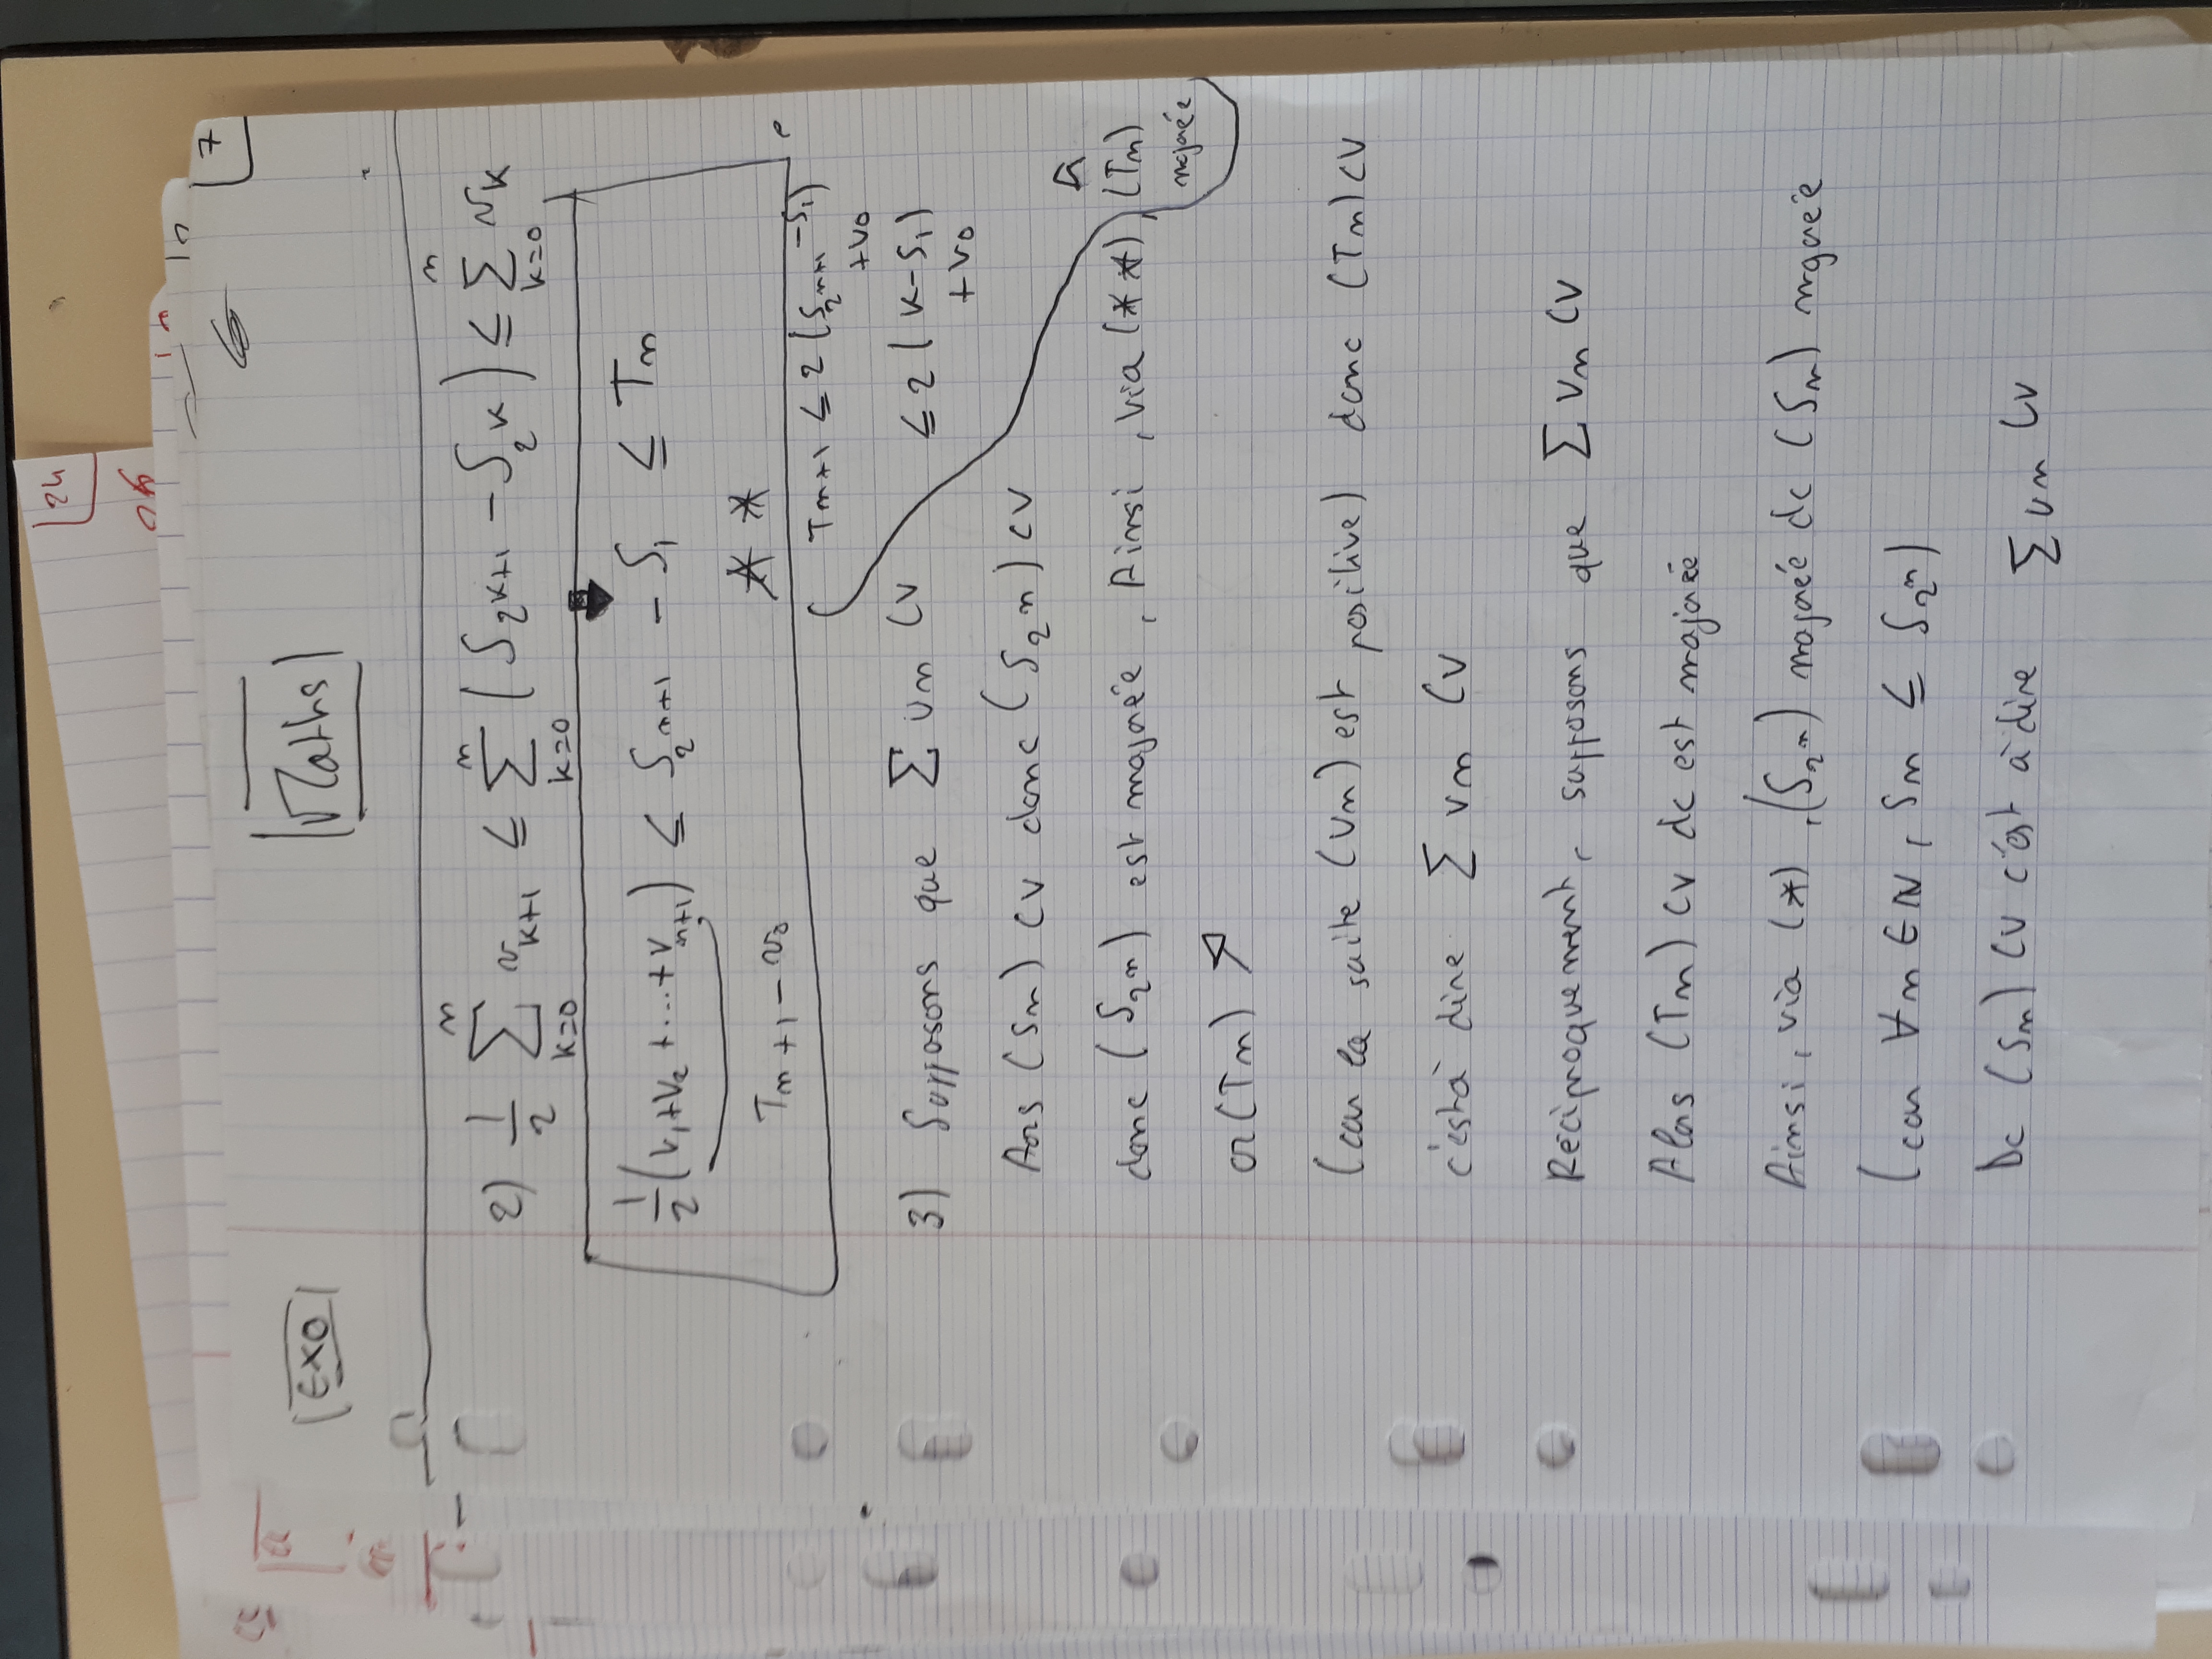 7
Maths
Exo
2) 1/2 ∑_{k=0}^{n} v_{k+1} ≤ ∑_{k=0}^{n} (S_{2^{k+1}} - S_{2^k}) ≤ ∑_{k=0}^{n} v_k
1/2 (v_1 + v_2 + .... + v_{n+1}) ≤ S_{2^{n+1}} - S_1 ≤ T_n
T_{n+1} - v_0
**
T_{n+1} ≤ 2 (S_{2^{n+1}} - S_1) + v_0
≤ 2 (K - S_1) + v_0
3) Supposons que ∑ un CV
Aors (Sn) CV donc (S_{2^n}) CV
donc (S_{2^n}) est majorée, Ainsi, via (**), (Tn) majorée
or (Tn) ↗
(car la suite (vn) est positive) donc (Tn) CV
c'està dire ∑ vn CV
Réciproquement, supposons que ∑ vn CV
Alors (Tn) CV dc est majorée
Ainsi, via (*), (S_{2^n}) majorée dc (Sn) majorée
(car ∀n ∈ ℕ, Sn ≤ S_{2^n})
Dc (Sn) CV c'est à dire ∑ un CV